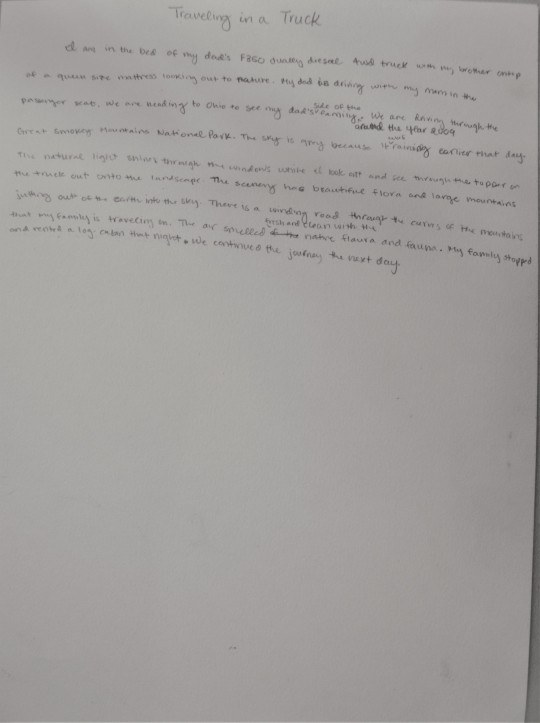 Traveling in a Truck
I am in the bed of my dad's F350 dually diesel 4wd truck with my brother ontop
of a queen size mattress looking out to nature. My dad is driving with my mom in the
passenger seat. We are heading to Ohio to see my dad's side of the family. We are driving through the
Great Smokey Mountains National Park around the year 2009. The sky is gray because it was raining earlier that day.
The natural light shines through the windows while I look out and see through the topper on
the truck out onto the landscape. The scenery has beautiful flora and large mountains
jutting out of the earth into the sky. There is a winding road through the curves of the mountains
that my family is traveling on. The air smelled fresh and clean with the native flaura and fauna. My family stopped
and rented a log cabin that night. We continued the journey the next day.